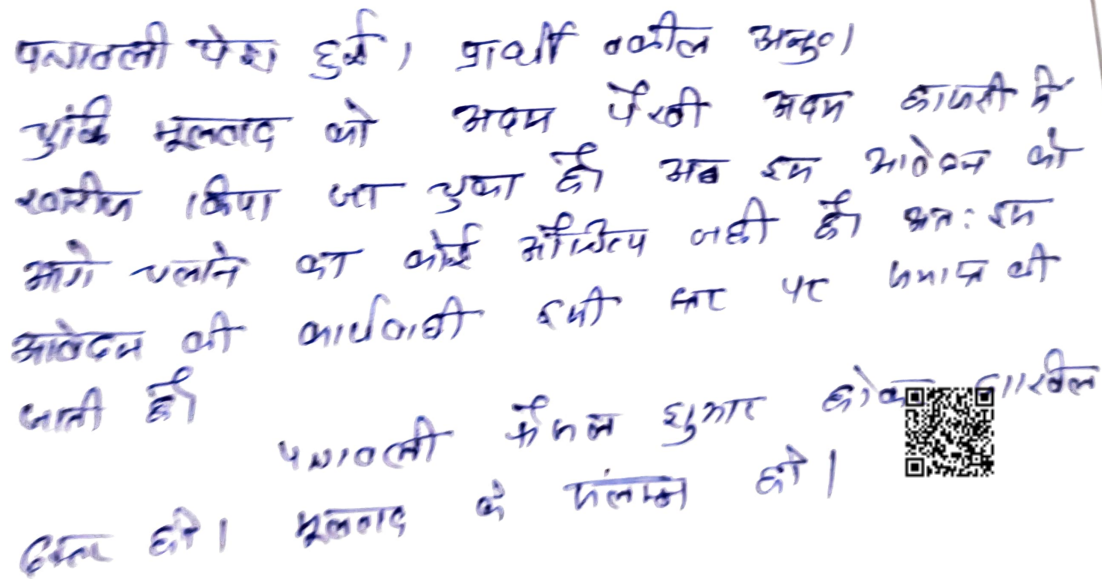 पत्रावली पेश हुई। प्रार्थी वकील अनु०।
चूंकि मूलवाद को अदम पैरवी अदम हाजरी में
खारीज किया जा चुका है। अब इस आवेदन को
आगे चलाने का कोई औचित्य नही है। अतः इस
आवेदन की कार्यवाही इसी स्तर पर समाप्त की
जाती है।
पत्रावली फैसल शुमार होकर दाखिल
दफ्तर हो। मूलवाद के संलग्न हो।